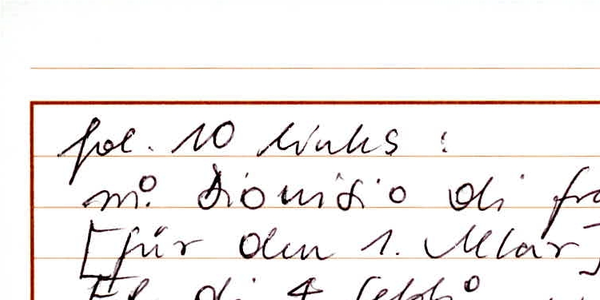 fol. 10 links :
mº. Dionisio di fra
[für den 1. Altar]
di 4